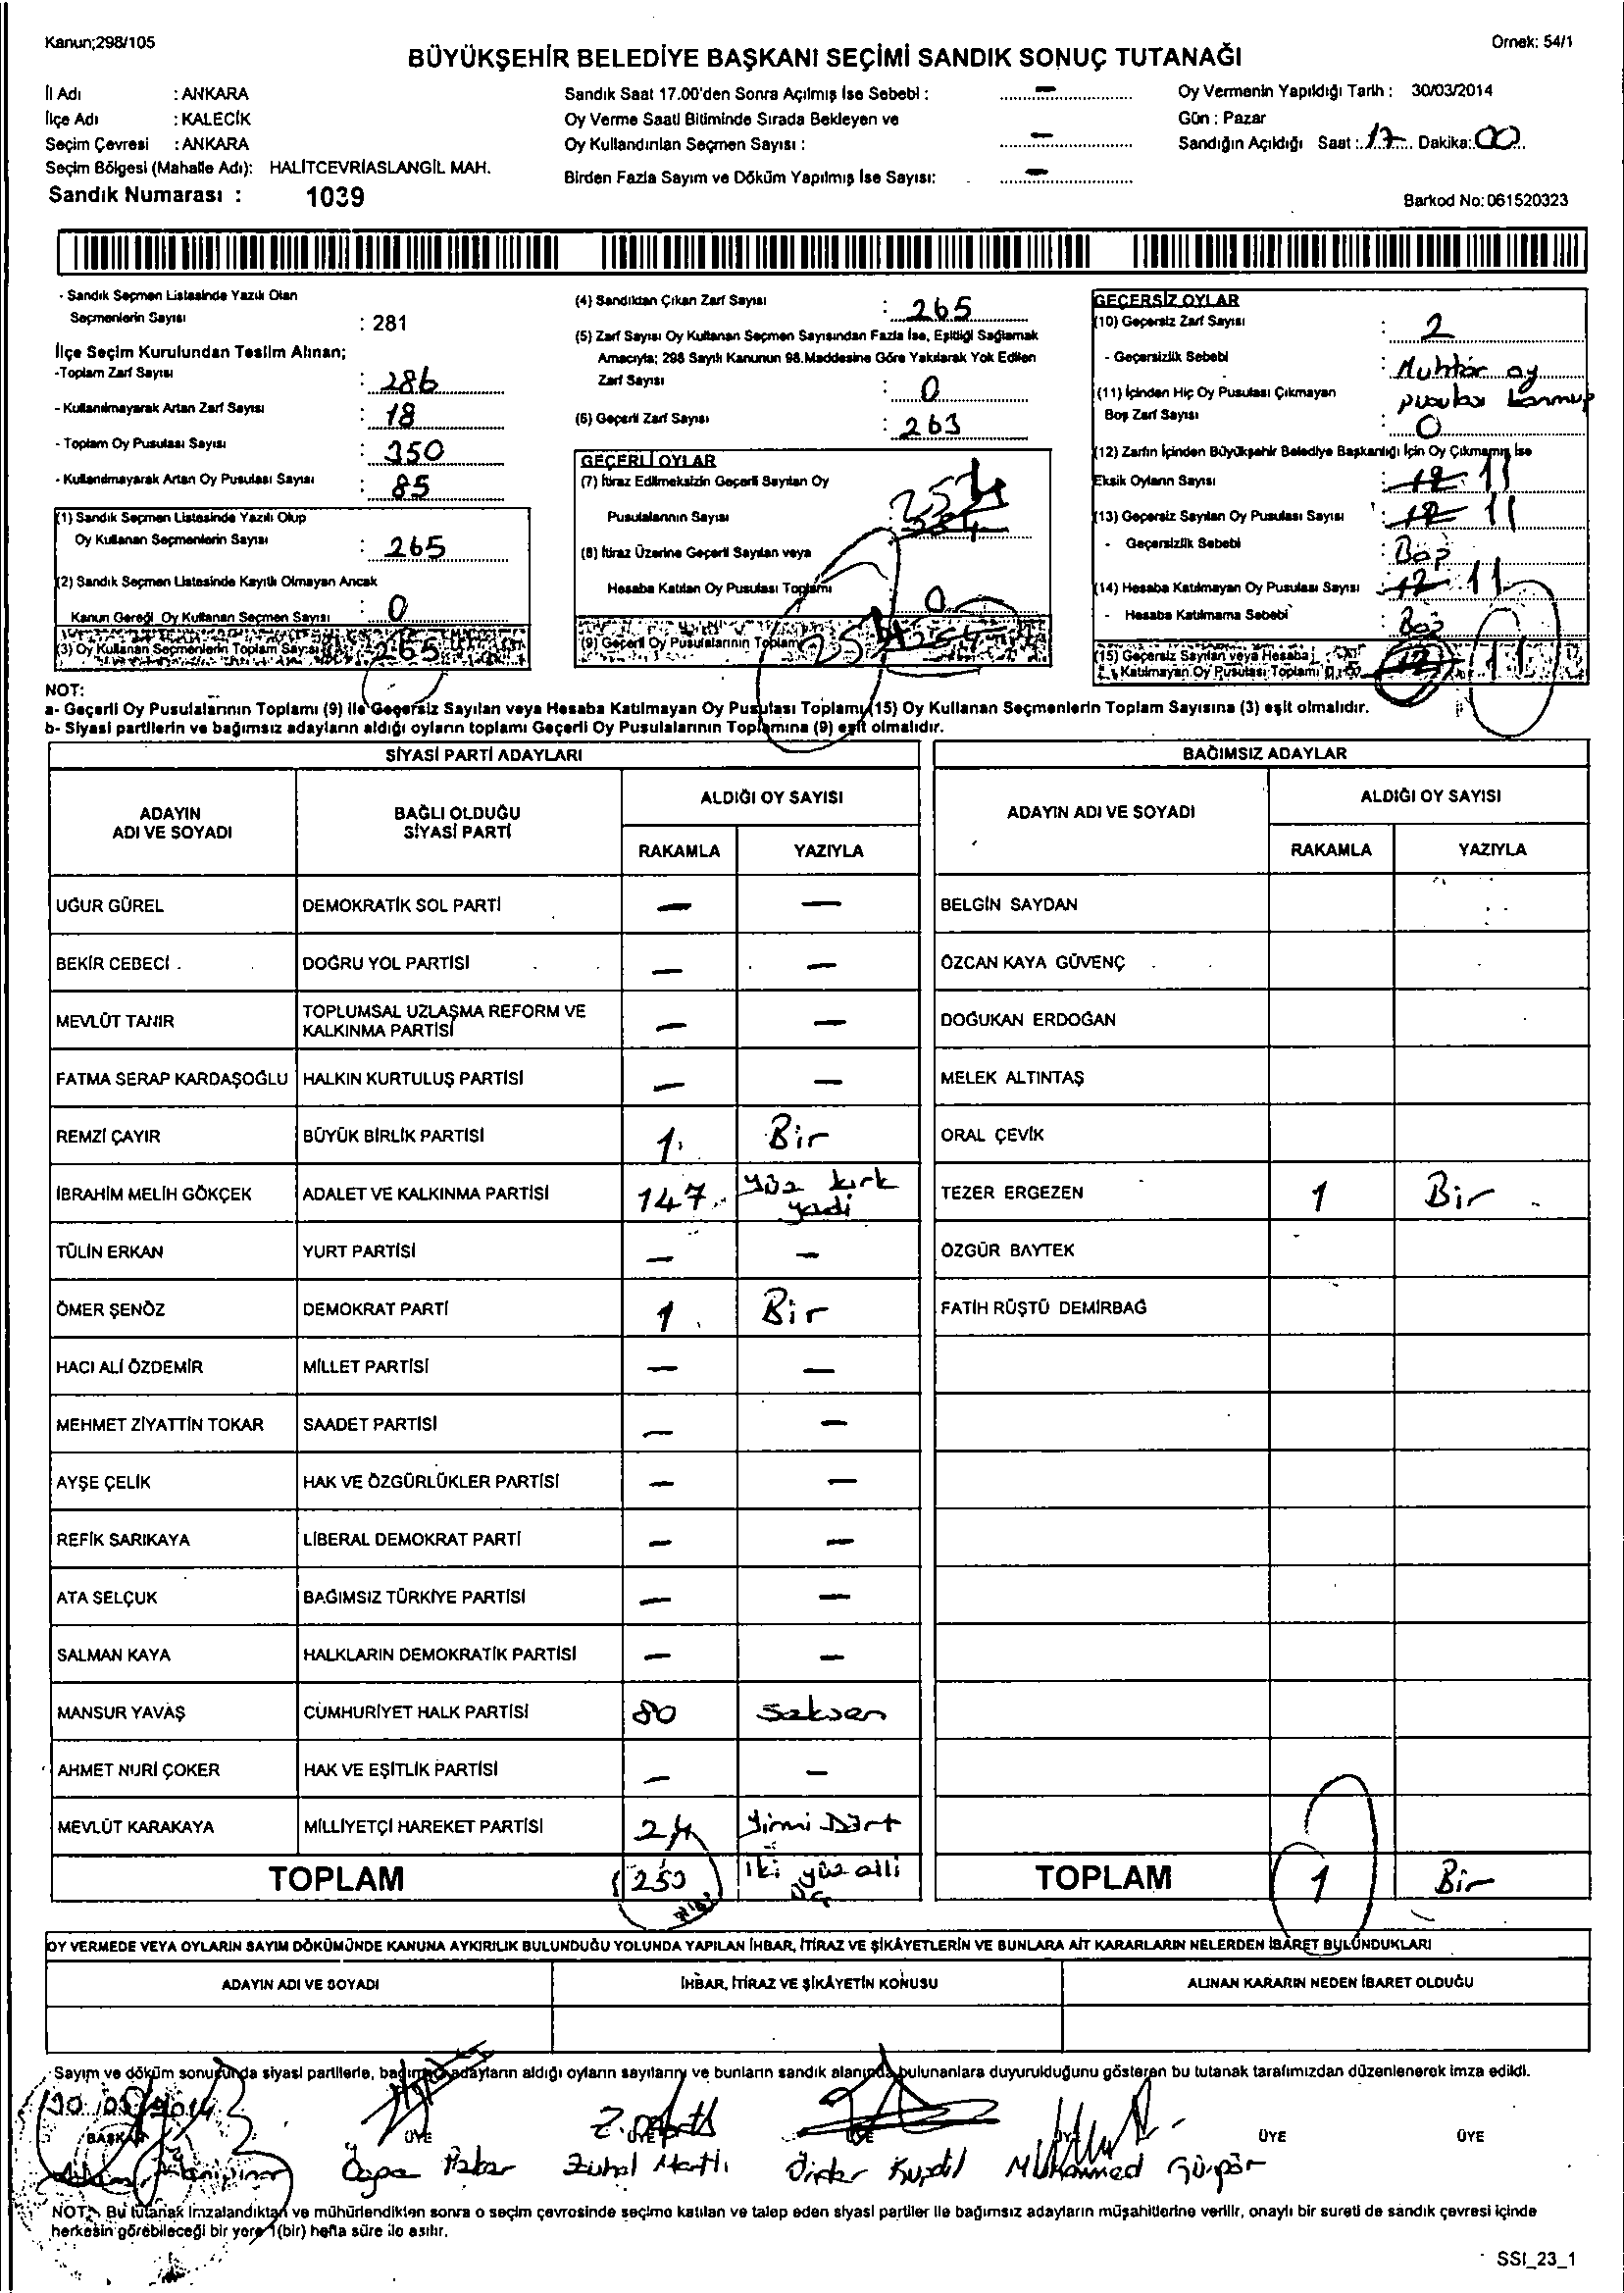 Kanun;298/105
Örnek: 54/1
BÜYÜKŞEHİR BELEDİYE BAŞKANI SEÇİMİ SANDIK SONUÇ TUTANAĞI
İl Adı : ANKARA
İlçe Adı : KALECİK
Seçim Çevresi : ANKARA
Seçim Bölgesi (Mahalle Adı): HALİTCEVRİASLANGİL MAH.
Sandık Numarası : 1039
Sandık Saat 17.00'den Sonra Açılmış İse Sebebi : –
Oy Verme Saati Bitiminde Sırada Bekleyen ve
Oy Kullandırılan Seçmen Sayısı : –
Birden Fazla Sayım ve Döküm Yapılmış İse Sayısı: –
Oy Vermenin Yapıldığı Tarih : 30/03/2014
Gün : Pazar
Sandığın Açıldığı Saat : 17 Dakika: 00
Barkod No: 061520323
- Sandık Seçmen Listesinde Yazılı Olan
Seçmenlerin Sayısı : 281
İlçe Seçim Kurulundan Teslim Alınan;
-Toplam Zarf Sayısı : 286
- Kullanılmayarak Artan Zarf Sayısı : 18
- Toplam Oy Pusulası Sayısı : 350
- Kullanılmayarak Artan Oy Pusulası Sayısı : 85
(1) Sandık Seçmen Listesinde Yazılı Olup
Oy Kullanan Seçmenlerin Sayısı : 265
(2) Sandık Seçmen Listesinde Kayıtlı Olmayan Ancak
Kanun Gereği Oy Kullanan Seçmen Sayısı : 0
(3) Oy Kullanan Seçmenlerin Toplam Sayısı 265
(4) Sandıktan Çıkan Zarf Sayısı : 265
(5) Zarf Sayısı Oy Kullanan Seçmen Sayısından Fazla İse, Eşitliği Sağlamak
Amacıyla; 298 Sayılı Kanunun 98.Maddesine Göre Yakılarak Yok Edilen
Zarf Sayısı : 0
(6) Geçerli Zarf Sayısı : 263
GEÇERLİ OYLAR
(7) İtiraz Edilmeksizin Geçerli Sayılan Oy
Pusulalarının Sayısı : 254
(8) İtiraz Üzerine Geçerli Sayılan veya
Hesaba Katılan Oy Pusulası Toplamı 0
(9) Geçerli Oy Pusulalarının Toplamı 254 254
GEÇERSİZ OYLAR
(10) Geçersiz Zarf Sayısı : 2
- Geçersizlik Sebebi : Muhtar oy
pusulası konmuş
(11) İçinden Hiç Oy Pusulası Çıkmayan
Boş Zarf Sayısı : 0
(12) Zarfın İçinden Büyükşehir Belediye Başkanlığı İçin Oy Çıkmamış İse
Eksik Oyların Sayısı : 12 11
(13) Geçersiz Sayılan Oy Pusulası Sayısı : 12 11
- Geçersizlik Sebebi : Boş
(14) Hesaba Katılmayan Oy Pusulası Sayısı : 12 11
- Hesaba Katılmama Sebebi : Boş
(15) Geçersiz Sayılan veya Hesaba
Katılmayan Oy Pusulası Toplamı 12 11
NOT:
a- Geçerli Oy Pusulalarının Toplamı (9) ile Geçersiz Sayılan veya Hesaba Katılmayan Oy Pusulası Toplamı (15) Oy Kullanan Seçmenlerin Toplam Sayısına (3) eşit olmalıdır.
b- Siyasi partilerin ve bağımsız adayların aldığı oyların toplamı Geçerli Oy Pusulalarının Toplamına (9) eşit olmalıdır.
SİYASİ PARTİ ADAYLARI
ADAYIN ADI VE SOYADI
BAĞLI OLDUĞU SİYASİ PARTİ
ALDIĞI OY SAYISI
RAKAMLA YAZIYLA
UĞUR GÜREL DEMOKRATİK SOL PARTİ – –
BEKİR CEBECİ DOĞRU YOL PARTİSİ – –
MEVLÜT TANIR TOPLUMSAL UZLAŞMA REFORM VE KALKINMA PARTİSİ – –
FATMA SERAP KARDAŞOĞLU HALKIN KURTULUŞ PARTİSİ – –
REMZİ ÇAYIR BÜYÜK BİRLİK PARTİSİ 1 Bir
İBRAHİM MELİH GÖKÇEK ADALET VE KALKINMA PARTİSİ 147 yüz kırk yedi
TÜLİN ERKAN YURT PARTİSİ – –
ÖMER ŞENÖZ DEMOKRAT PARTİ 1 Bir
HACI ALİ ÖZDEMİR MİLLET PARTİSİ – –
MEHMET ZİYATTİN TOKAR SAADET PARTİSİ – –
AYŞE ÇELİK HAK VE ÖZGÜRLÜKLER PARTİSİ – –
REFİK SARIKAYA LİBERAL DEMOKRAT PARTİ – –
ATA SELÇUK BAĞIMSIZ TÜRKİYE PARTİSİ – –
SALMAN KAYA HALKLARIN DEMOKRATİK PARTİSİ – –
MANSUR YAVAŞ CUMHURİYET HALK PARTİSİ 80 Seksen
AHMET NURİ ÇOKER HAK VE EŞİTLİK PARTİSİ – –
MEVLÜT KARAKAYA MİLLİYETÇİ HAREKET PARTİSİ 24 Yirmi Dört
TOPLAM 253 iki yüz elli üç
BAĞIMSIZ ADAYLAR
ADAYIN ADI VE SOYADI
ALDIĞI OY SAYISI
RAKAMLA YAZIYLA
BELGİN SAYDAN
ÖZCAN KAYA GÜVENÇ
DOĞUKAN ERDOĞAN
MELEK ALTINTAŞ
ORAL ÇEVİK
TEZER ERGEZEN 1 Bir
ÖZGÜR BAYTEK
FATİH RÜŞTÜ DEMİRBAĞ
TOPLAM 1 Bir
OY VERMEDE VEYA OYLARIN SAYIM DÖKÜMÜNDE KANUNA AYKIRILIK BULUNDUĞU YOLUNDA YAPILAN İHBAR, İTİRAZ VE ŞİKÂYETLERİN VE BUNLARA AİT KARARLARIN NELERDEN İBARET BULUNDUKLARI
ADAYIN ADI VE SOYADI
İHBAR, İTİRAZ VE ŞİKÂYETİN KONUSU
ALINAN KARARIN NEDEN İBARET OLDUĞU
Sayım ve döküm sonucunda siyasi partilerle, bağımsız adayların aldığı oyların sayılarını ve bunların sandık alanında bulunanlara duyurulduğunu gösteren bu tutanak tarafımızdan düzenlenerek imza edildi.
30.03.2014
BAŞKAN ÜYE ÜYE ÜYE ÜYE ÜYE ÜYE
Zühal Muhammed
NOT: Bu tutanak imzalandıktan ve mühürlendikten sonra o seçim çevresinde seçime katılan ve talep eden siyasi partiler ile bağımsız adayların müşahitlerine verilir, onaylı bir sureti de sandık çevresi içinde
herkesin görebileceği bir yere 1(bir) hafta süre ile asılır.
SSI_23_1